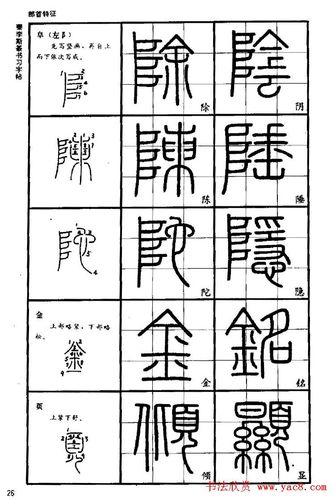 部首特征
秦李斯篆书习字帖
阜(左阝)
先写竖画,再自上
而下依次写成。
除
阴
陈
陲
陀
隐
金
上部略紧,下部略
松。
金
铭
页
上紧下舒。
倾
显
26
书法欣赏
www.yac8.com